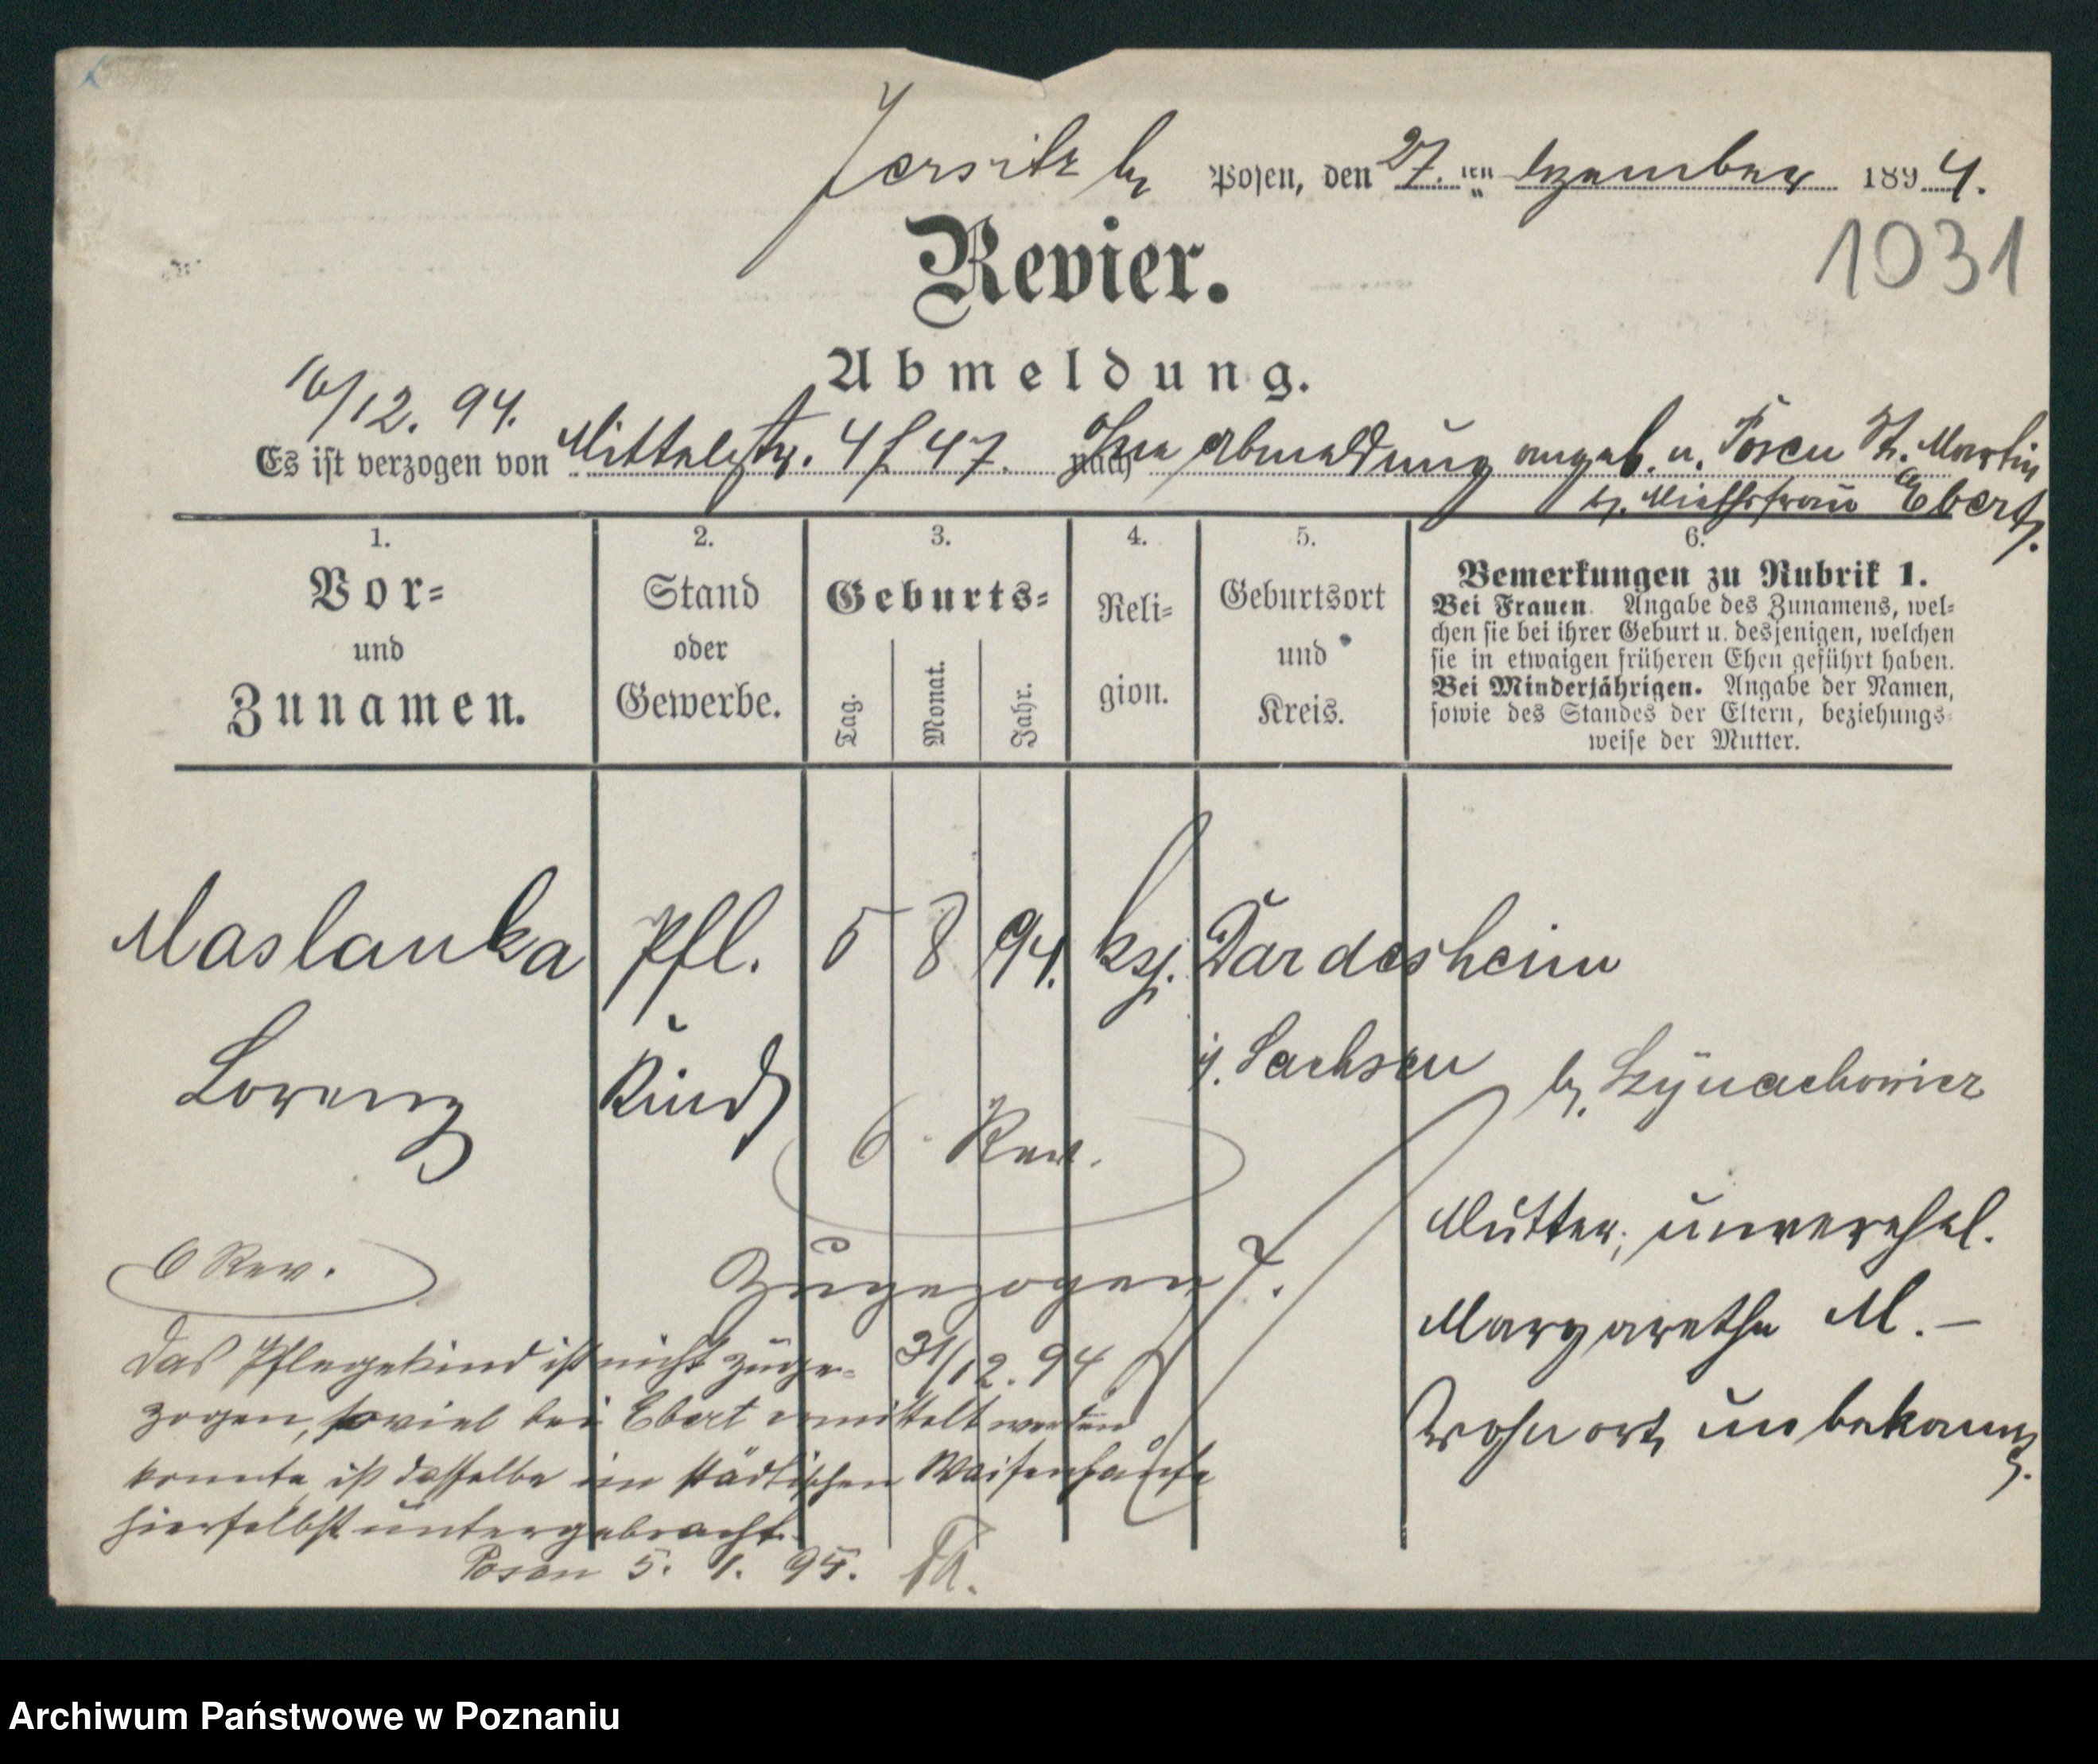 Jersitz b/ Posen, den 27. ten Dezember 1894.
1031
Revier.
Abmeldung.
16/12. 94.
Es ist verzogen von Mittelstr. 47. nach Abmeldung angeb. n. Posen St. Martin
b. Miethsfrau Ebert.
1. 2. 3. 4. 5. 6.
Vor- und Zunamen.
Stand oder Gewerbe.
Geburts-
Tag. Monat. Jahr.
Reli-
gion.
Geburtsort und Kreis.
Bemerkungen zu Rubrik 1.
Bei Frauen. Angabe des Zunamens, wel-
chen sie bei ihrer Geburt u. desjenigen, welchen
sie in etwaigen früheren Ehen geführt haben.
Bei Minderjährigen. Angabe der Namen,
sowie des Standes der Eltern, beziehungs-
weise der Mutter.
Maslanka Pfl. 5 8 94. Dardesheim
Lorenz Kind i. Sachsen
6 Rev.
Mutter, unverehel.
Margarethe M. –
Wohnort unbekannt.
6 Rev.
Zugezogen?
31/12. 94
Das Pflegekind ist nicht zuge-
zogen, soviel bei Ebert ermittelt werden
konnte, ist dasselbe im städtischen Waisenhause
hierselbst untergebracht.
Posen 5. 1. 95.
Archiwum Państwowe w Poznaniu